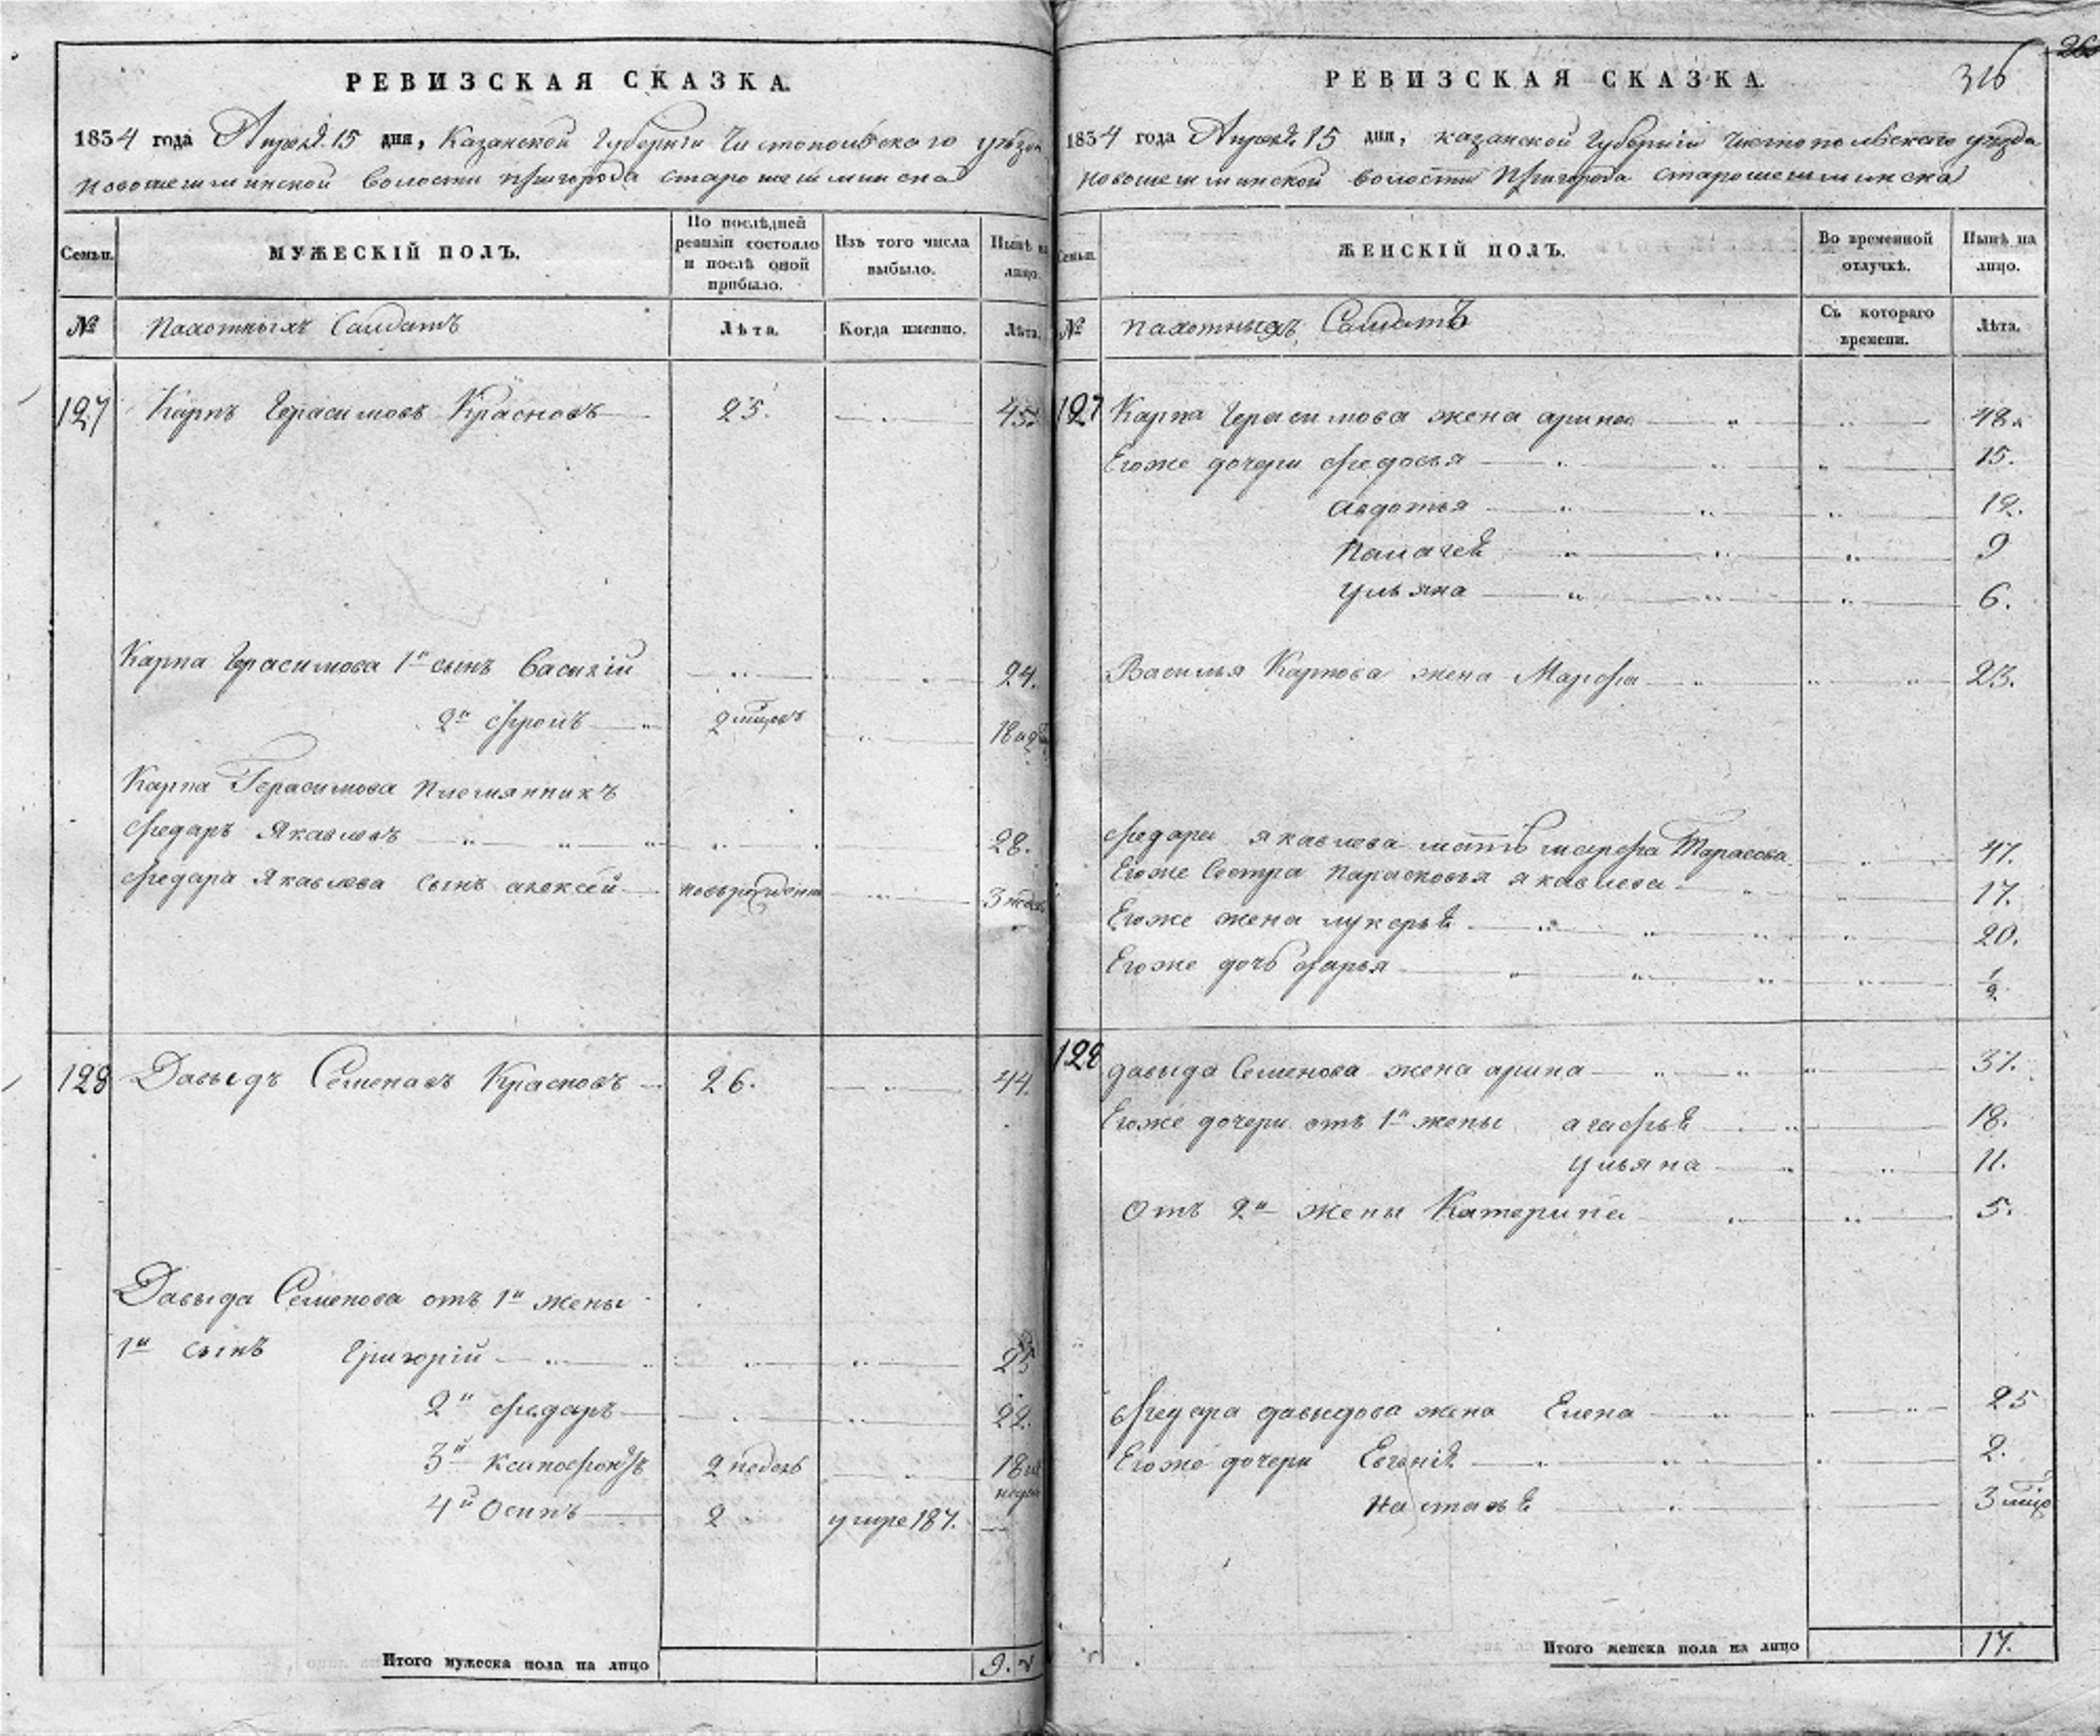 РЕВИЗСКАЯ СКАЗКА.
1834 года Апрел. 15 дня, Казанской Губернги Чистопольскаго уѣзда
Новошешминской Волости Пригорода старошешминска
Семьи.
МУЖЕСКІЙ ПОЛЪ.
По послѣдней ревизіи состояло и послѣ оной прибыло.
Изъ того числа выбыло.
Нынѣ на лицо.
№
Пахотныхъ Салдатъ
Лѣта.
Когда именно.
Лѣта.
127 Карпъ Герасимовъ Красновъ 25. 45.
Карпа Герасимова 1й сынъ Василій 24.
2й Фролъ 2
Карпа Герасимова племянникъ
Федаръ Якавлевъ 28.
Федара Якавлева сынъ алексей 3
128 Давыдъ Семенавъ Красновъ 26. 44.
Давыда Семенова отъ 1й жены
1й сынъ Григорій 25
2й Федаръ 22.
3й Ксинофонтъ 2 недель 18
4й Осипъ 2 умре 187.
Итого мужеска пола на лицо 9.
316
РЕВИЗСКАЯ СКАЗКА.
1834 года Апрел. 15 дня, казанской Губерніи Чистопольскаго уѣзда
Новошешминской волости Пригорода Старошешминска
Семьи.
ЖЕНСКІЙ ПОЛЪ.
Во временной отлучкѣ.
Нынѣ на лицо.
№
пахотныхъ Салдатъ
Съ котораго времени.
Лѣта.
127 Карпа Герасимова жена арина 48.
Егоже дочери Федосья 15.
авдотья 12.
Палагеѣ 9
Ульяна 6.
Василья Карпова жена Марфа 23.
Федара якавлева мать марфа Тарасова 47.
Егоже Сестра Парасковья якавлева 17.
Егоже жена лукерьѣ 20.
Егоже дочь дарья 1/2
128 давыда Семенова жена арина 37.
Егоже дочери отъ 1й жены агафьѣ 18.
Ульяна 11.
Отъ 2й жены Катерина 5.
Федара давыдова жена Елена 25
Егоже дочери Евгеніѣ 2.
Настасьѣ 3
Итого женска пола на лицо 17.